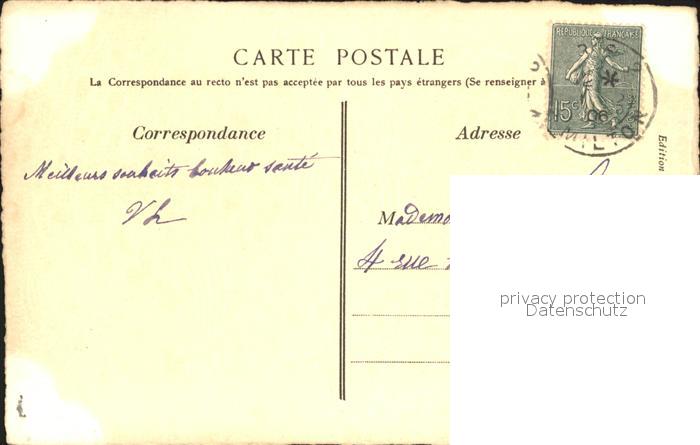 RÉPUBLIQUE FRANÇAISE
15c
06
CARTE POSTALE
La Correspondance au recto n'est pas acceptée par tous les pays étrangers (Se renseigner à
Correspondance
Adresse
Edition
Meilleurs souhaits bonheur santé
Mademo
4 rue
privacy protection
Datenschutz